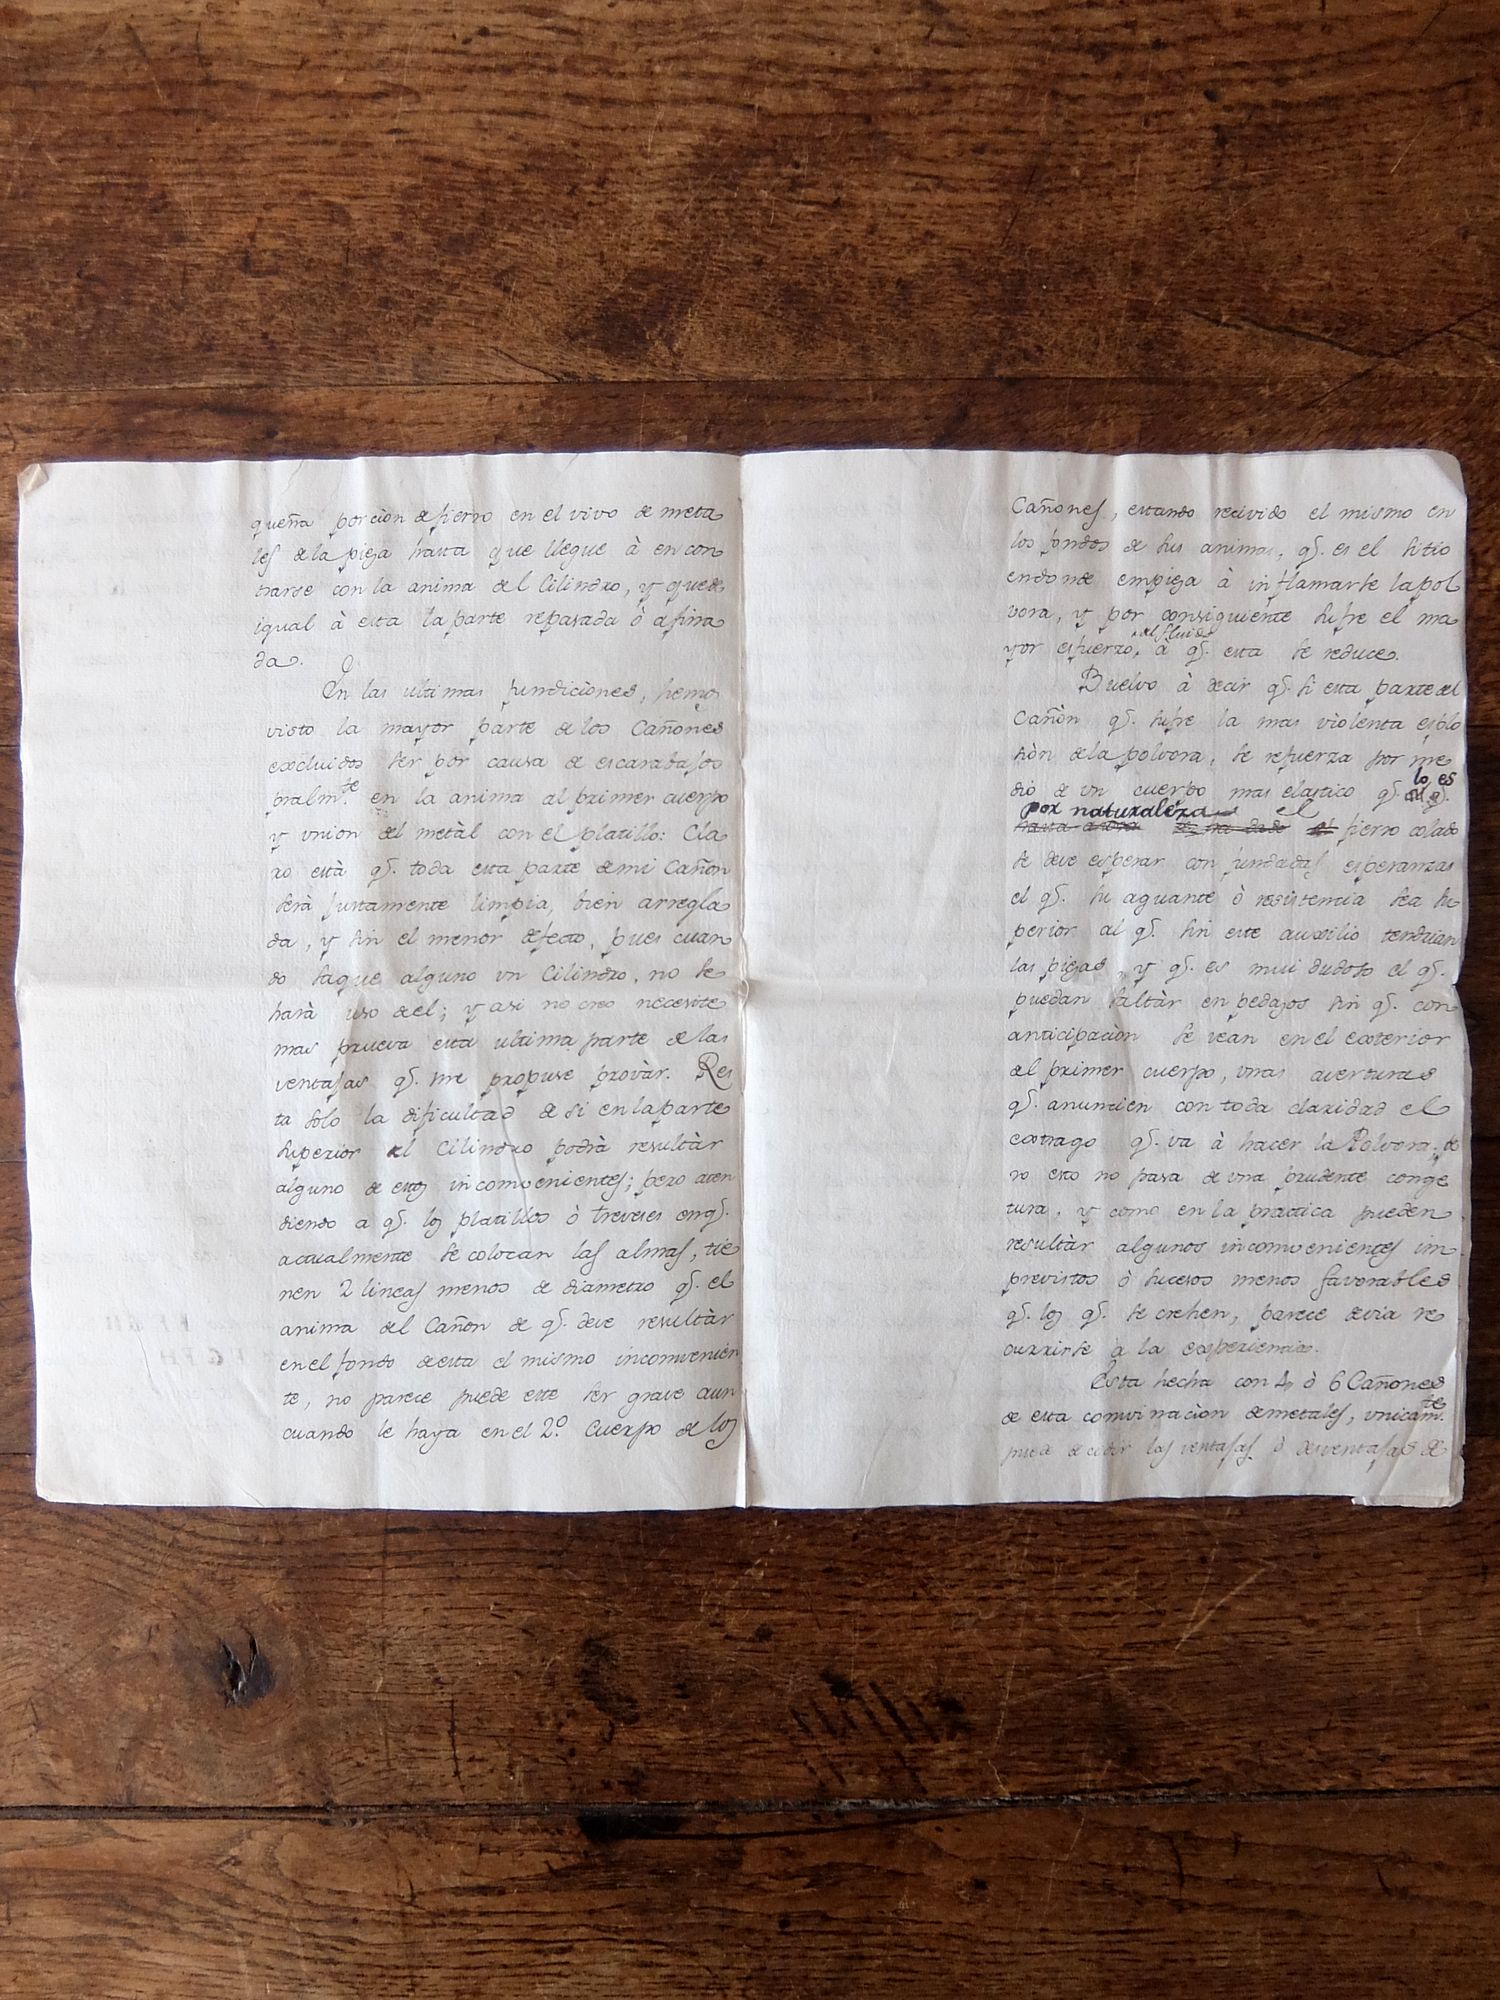 queña porcion de fierro en el vivo de meta
les de la pieza hasta que llegue à encon
trarse con la anima del Cilindro, y quede
igual à esta la parte repasada ò afina
da.
En las ultimas fundiciònes, hemos
visto la mayor parte de los Cañones
excluidos ser por causa de escarabajos
pralmte. en la anima al primer cuerpo
y vnion del metàl con el platillo: Cla
ro està qe. toda esta parte de mi Cañon
serà justamente limpia, bien arregla
da, y sin el menor defecto, pues cuan
do saque alguno vn Cilindro, no se
harà uso del; y asi no creo necesite
mas prueva esta ultima parte de las
ventajas qe. me propuse provàr. Res
ta solo la dificultad de si en la parte
superior al Cilindro podrà resultàr
alguno de estos incomvenientes; pero aten
diendo a qe. los platillos ò treveses en qe.
actualmente se colocan las almas, tie
nen 2 lineas menos de diametro qe. el
anima del Cañon de qe. deve resultàr
en el fondo de esta el mismo incomvenien
te, no parece puede este ser grave aun
cuando le haya en el 2.º Cuerpo de los
Cañones, estando recivido el mismo en
los fondos de sus animas, qe. es el sitio
en donde empieza à inflamarse la pol
vora, y por consiguiente sufre el ma
yor esfuerzo, del fluido à qe. esta se reduce.
Buelvo à decir qe. si esta parte del
Cañòn qe. sufre la mas violenta esplo
siòn de la polvora, se refuerza por me
dio de vn cuerpo mas elastico qe. lo es
por naturaleza el
hasta ahora fierro colado
se deve esperar con fundadas esperanzas
el qe. su aguante ò resistencia sea su
perior al qe. sin este auxilio tendrian
las piezas, y qe. es mui dudoso el qe.
puedan saltàr en pedazos sin qe. con
anticipaciòn se vean en el exterior
del primer cuerpo, vnas averturas
qe. anuncien con toda claridad el
extrago qe. va à hacer la Polvora; pe
ro esto no pasa de vna prudente conge
tura, y como en la pràctica pueden
resultàr algunos incomvenientes im
previstos ò sucesos menos favorables
qe. los qe. se crehen, parece devia re
currirse à la experiencia.
Esta hecha con 4 ò 6 Cañones
de esta comvinaciòn de metales, vnicamte.
puede decidir las ventajas ò desventajas de